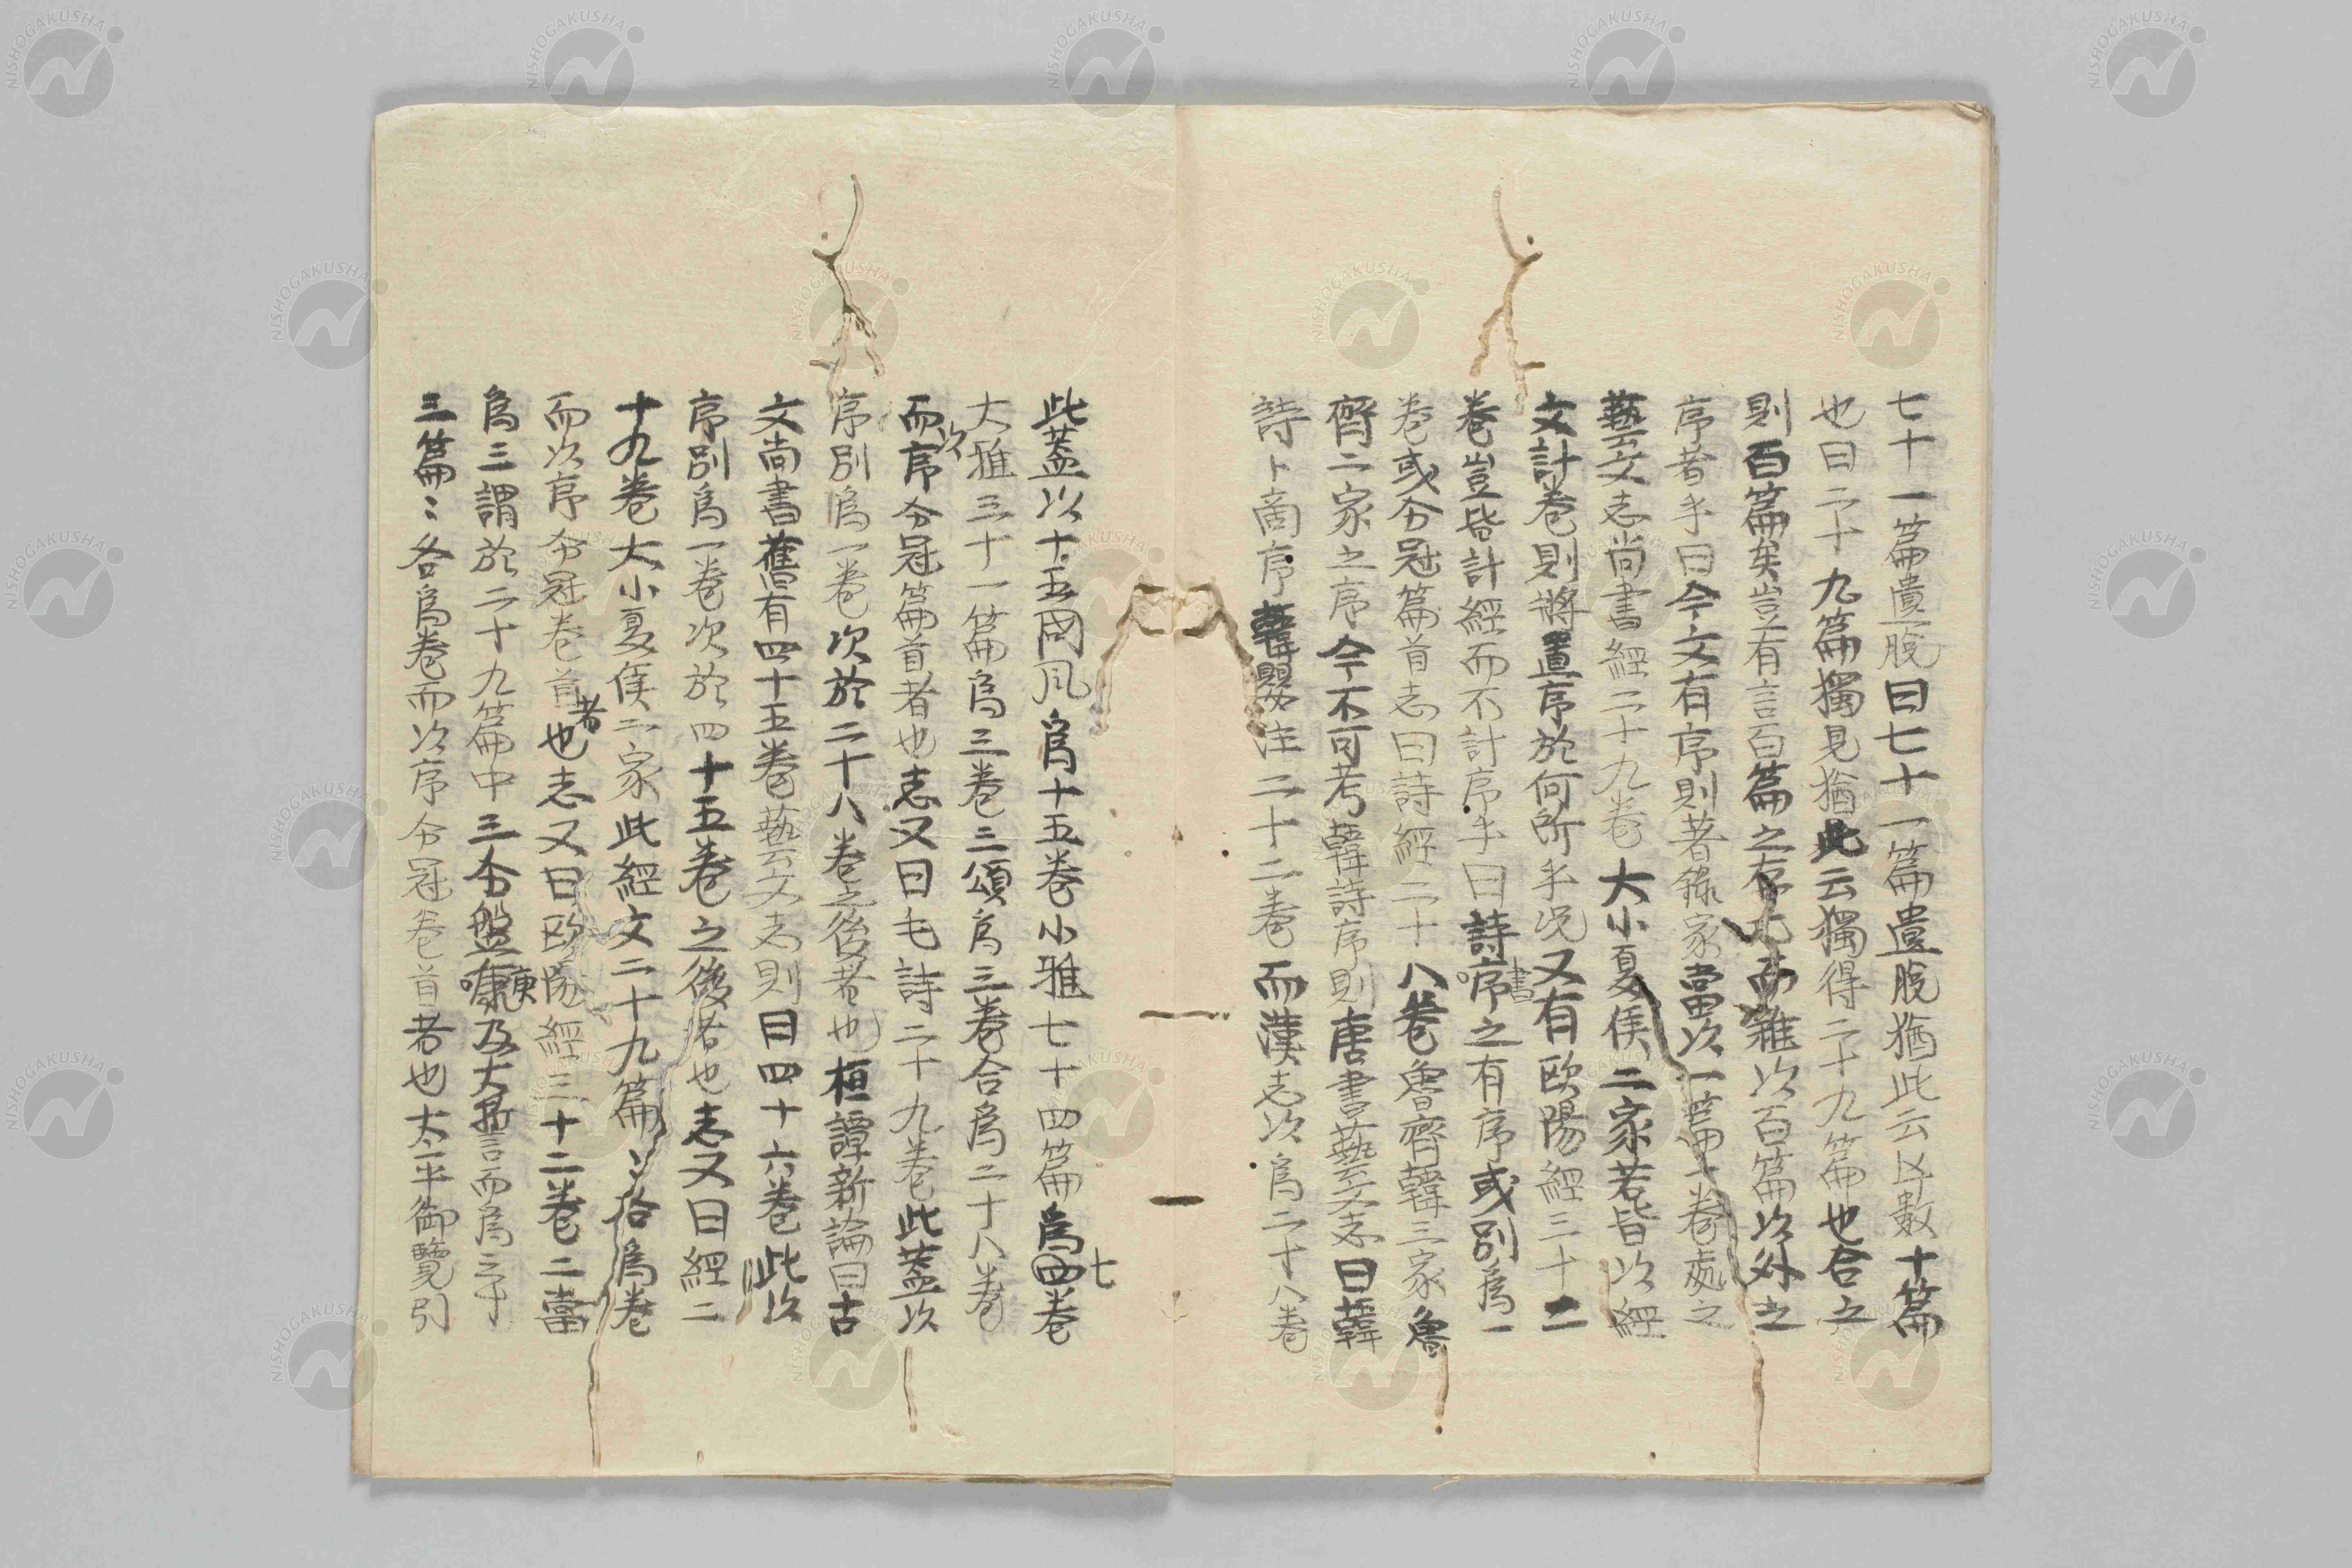 七十一篇遺脫曰七十一篇遺脫猶此云凶數十篇
也曰二十九篇獨見猶此云獨得二十九篇也合之
則百篇矣豈有言百篇之序而雜以百篇以外之
序者乎曰今文有序則著錄家當以一篇一卷處之
藝文志尚書經二十九卷大小夏侯二家若皆以經
文計卷則將置序於何所乎況又有歐陽經三十二
卷豈皆計經而不計序乎曰詩書序之有序或別為一
卷或分冠篇首志曰詩經二十八卷魯齊韓三家魯
齊二家之序今不可考韓詩序則唐書藝文志曰韓
詩卜商序韓嬰注二十二卷而漢志以為二十八卷
此蓋以十五國風為十五卷小雅七十四篇為七卷
大雅三十一篇為三卷三頌為三卷合為二十八卷
而以序分冠篇首者也志又曰毛詩二十九卷此蓋以
序別為一卷次於二十八卷之後者也桓譚新論曰古
文尚書舊有四十五卷藝文志則曰四十六卷此以
序別為一卷次於四十五卷之後者也志又曰經二
十九卷大小夏侯二家此經文二十九篇〻各為卷
而以序分冠卷首者也志又曰歐陽經三十二卷二當
為三謂於二十九篇中三分盤庚及大誓而為三十
三篇〻各為卷而以序分冠卷首者也太平御覽引